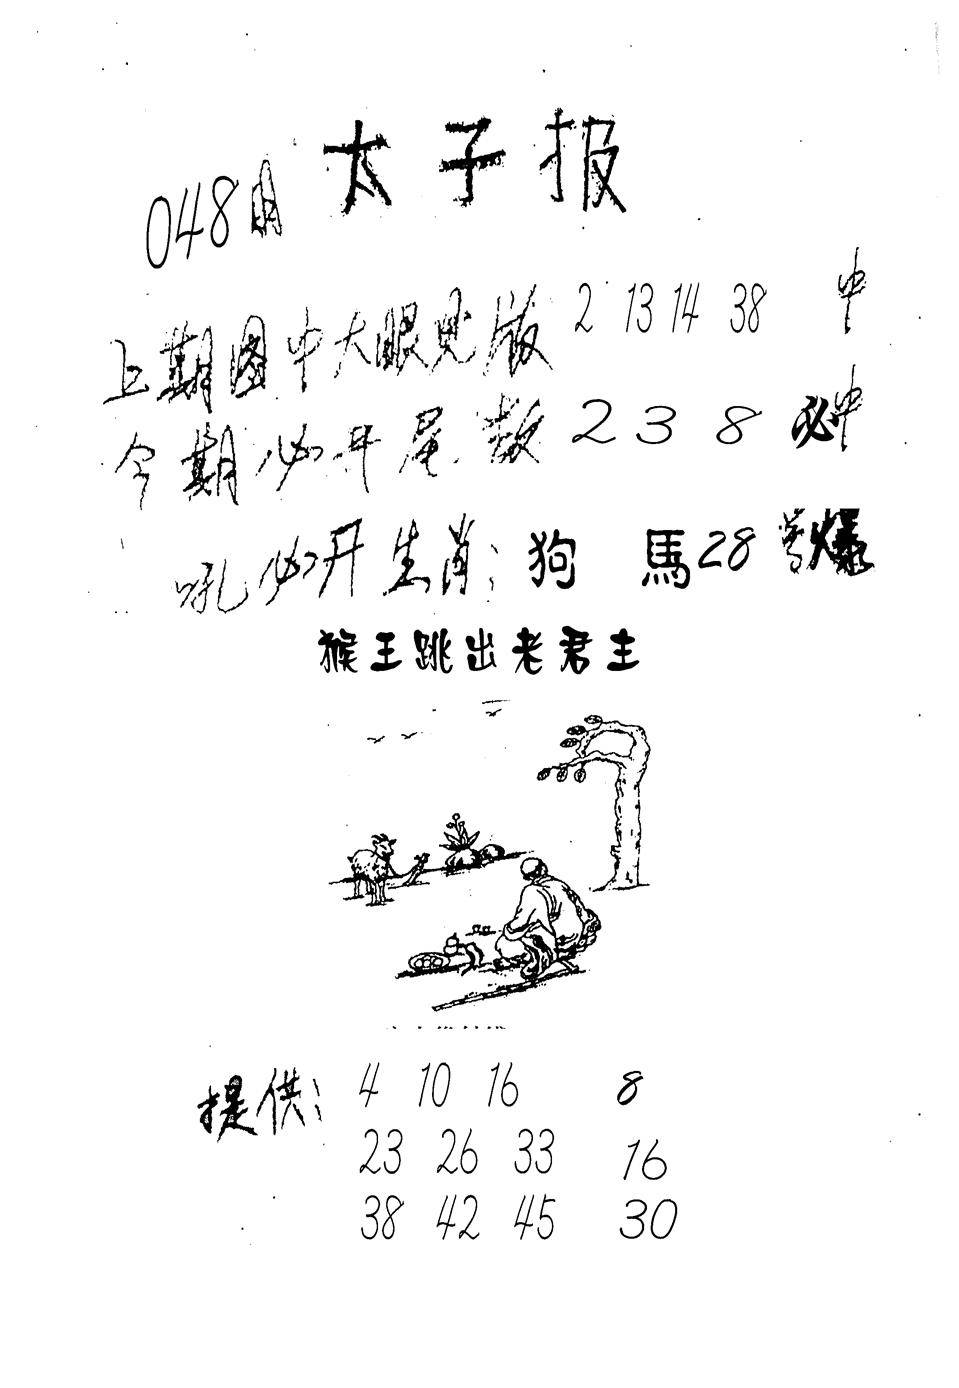 太子报
048期
上期图中大眼见版 2 13 14 38 中
今期必开尾数 2 3 8 必中
吼必开生肖: 狗 馬 28 爆
猴王跳出老君主
提供: 4 10 16 8
23 26 33 16
38 42 45 30